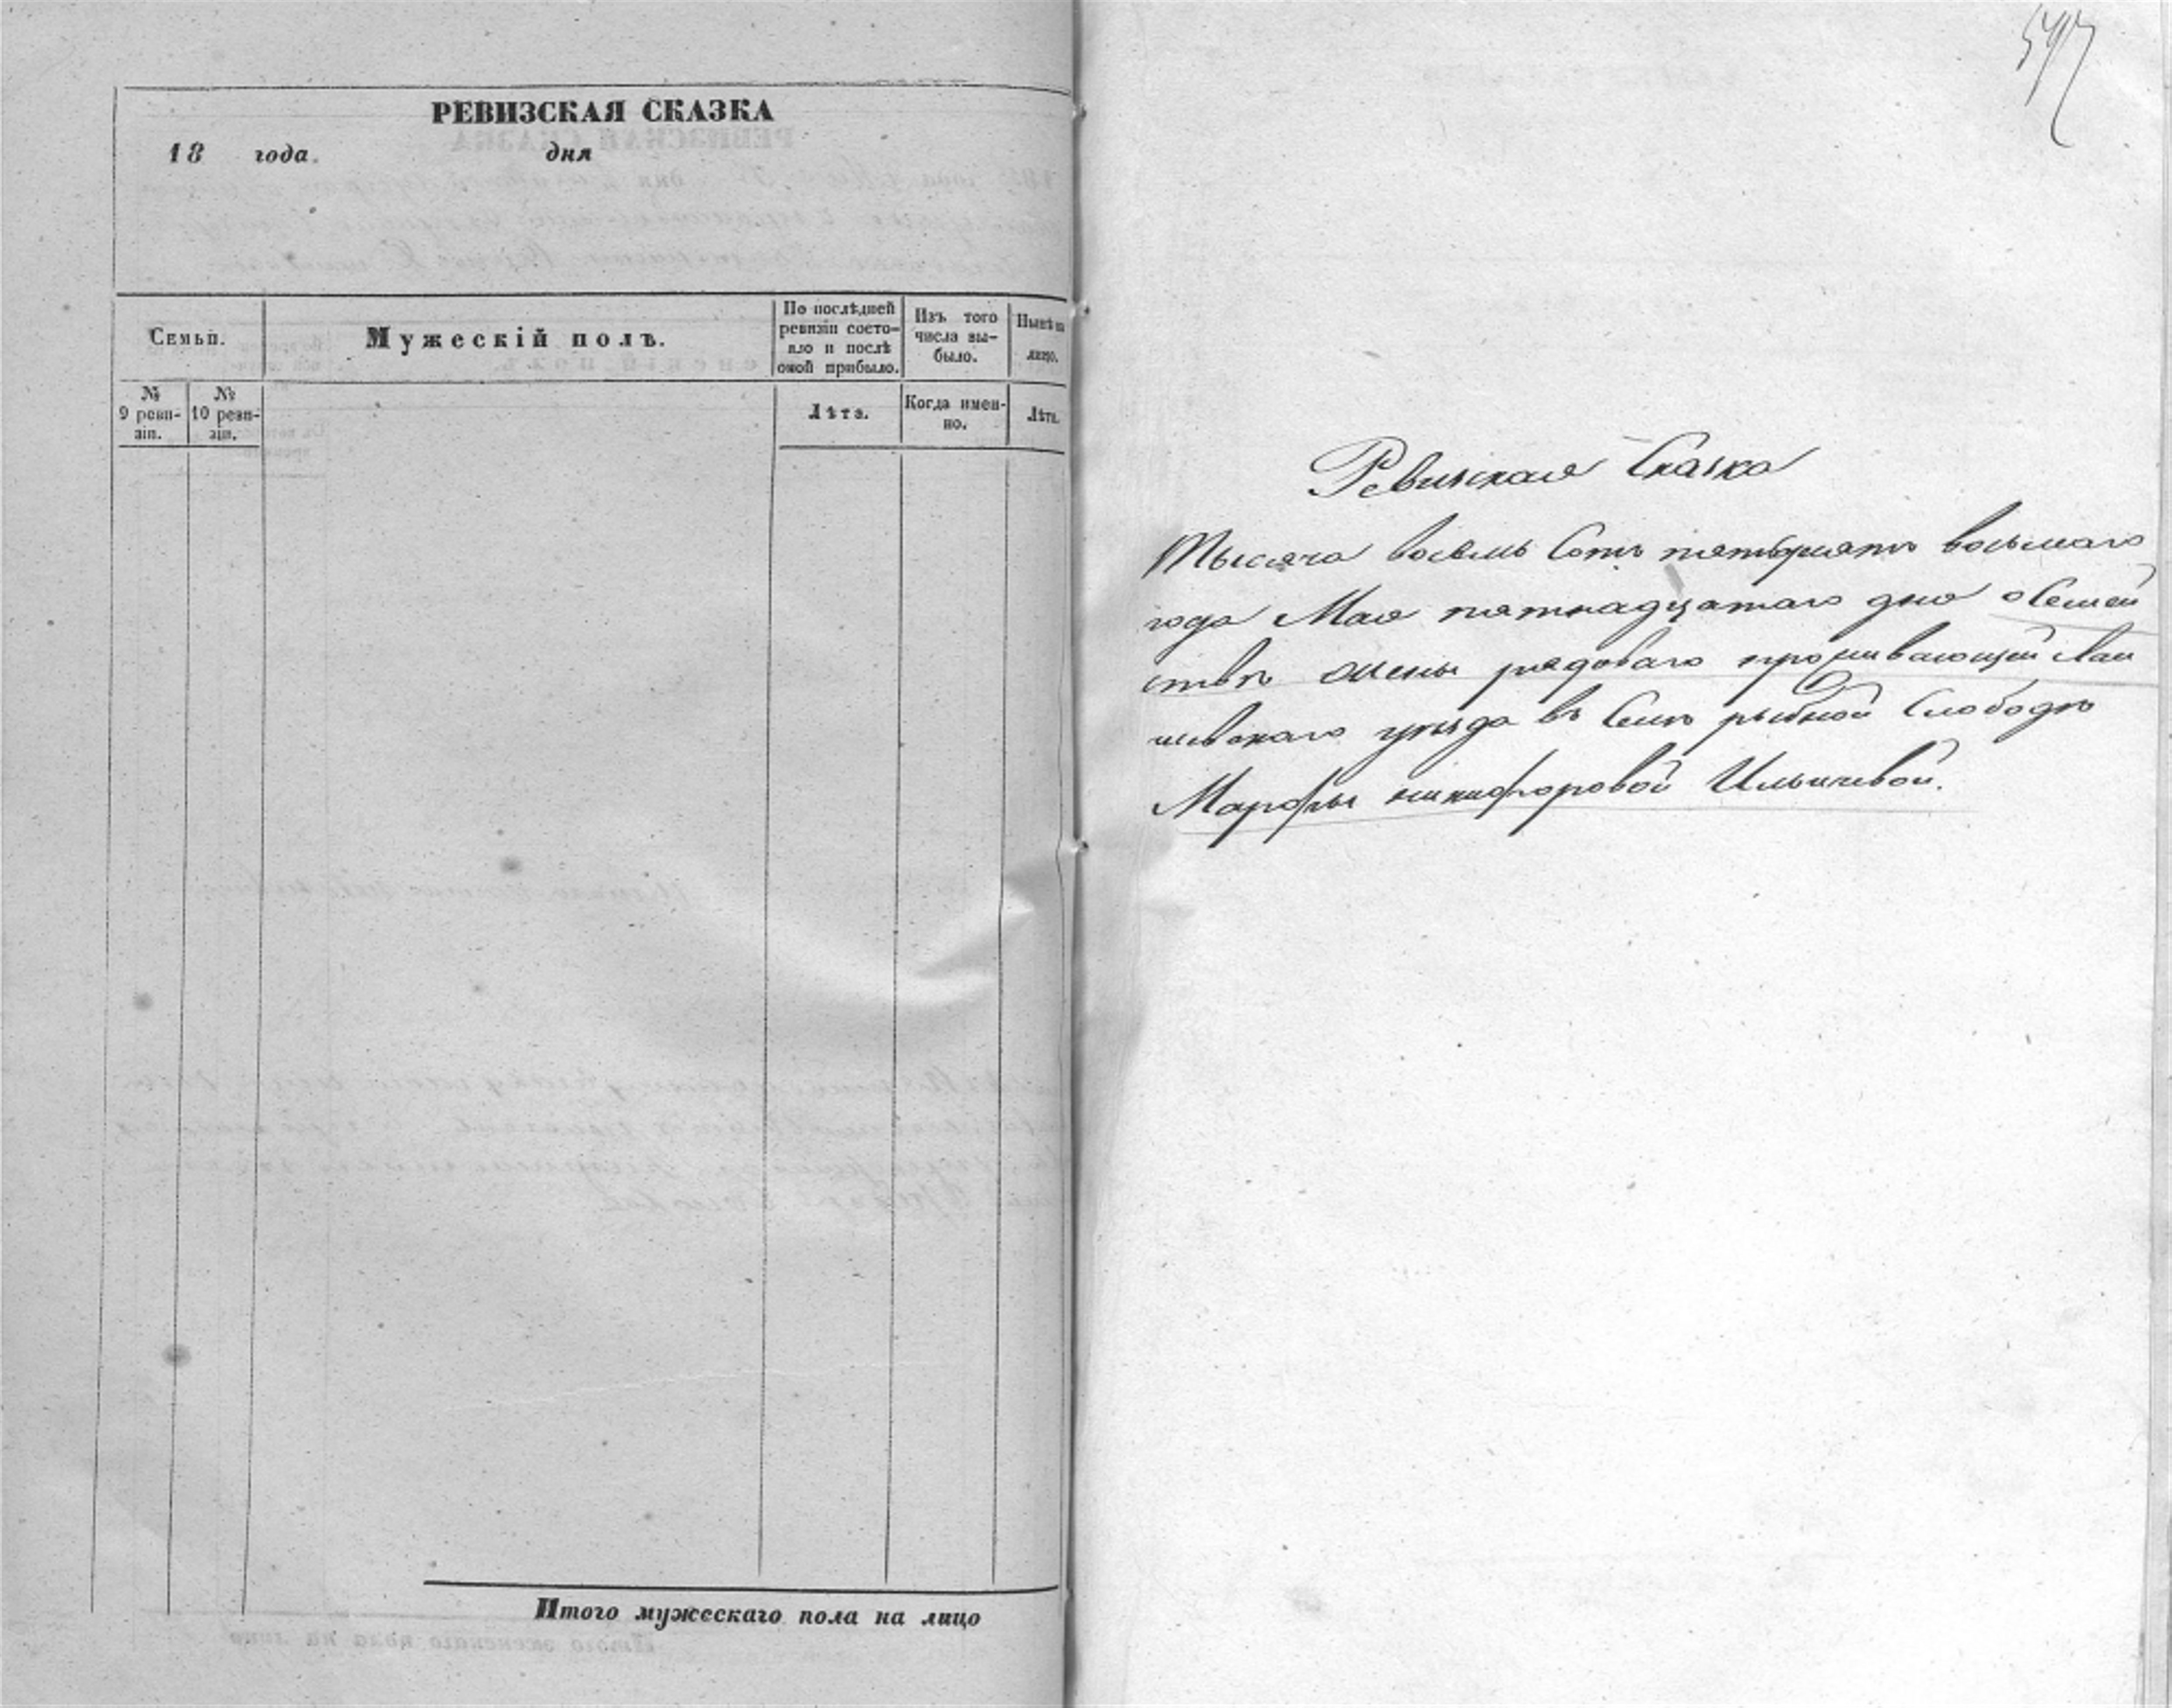 РЕВИЗСКАЯ СКАЗКА
18 года. дня
Семьи.
№ 9 ревизіи.
№ 10 ревизіи.
Мужескій полъ.
По послѣдней
ревизіи состо-
яло и послѣ
оной прибыло.
Лѣта.
Изъ того
числа вы-
было.
Когда имен-
но.
Нынѣ на
лицо.
Лѣта.
Итого мужескаго пола на лицо
547
Ревизская Сказка
Тысяча восемь Сотъ пятьдесятъ восьмаго
года Мая пятнадцатаго дня о Семей
ствѣ жены рядоваго проживающей Лаи
шевскаго уѣзда въ Селѣ рыбной Слободѣ
Марфы никифоровой Ильичевой.